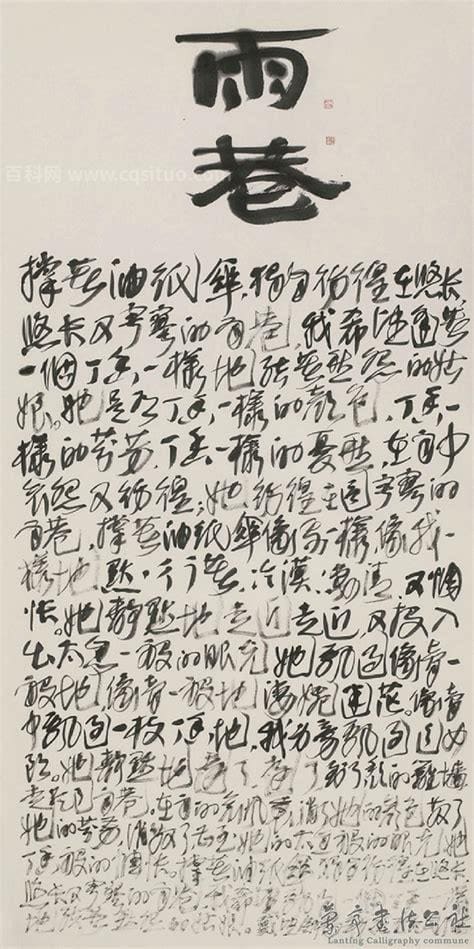 雨
巷
百科网 www.cqsituo.com
撑著油纸伞，独自彷徨在悠长、
悠长又寂寞的雨巷，我希望逢著
一個丁香一樣地结著愁怨的姑
娘。她是有丁香一樣的颜色，丁香一
樣的芬芳，丁香一樣的憂愁，在雨中
哀怨又彷徨；她彷徨在這寂寞的
雨巷，撑著油纸伞像我一樣，像我一
樣地默默行著，冷漠、凄清，又惆
怅。她静默地走近走近，又投入
出太息一般的眼光她飘过像夢一
般地，像夢一般地凄婉迷茫。像夢
中飘过一枝丁香地，我身旁飘过這女
郎。她静默地遠了遠了到了颓的籬墙
走尽這雨巷。在雨的哀曲裏消了她的颜色散了
她的芬芳，消散了甚至她的太息般的眼光她
丁香般的惆怅。撑著油纸伞独自彷徨在悠长
悠长又寂寞的雨巷我希望
Lanting Calligraphy commune